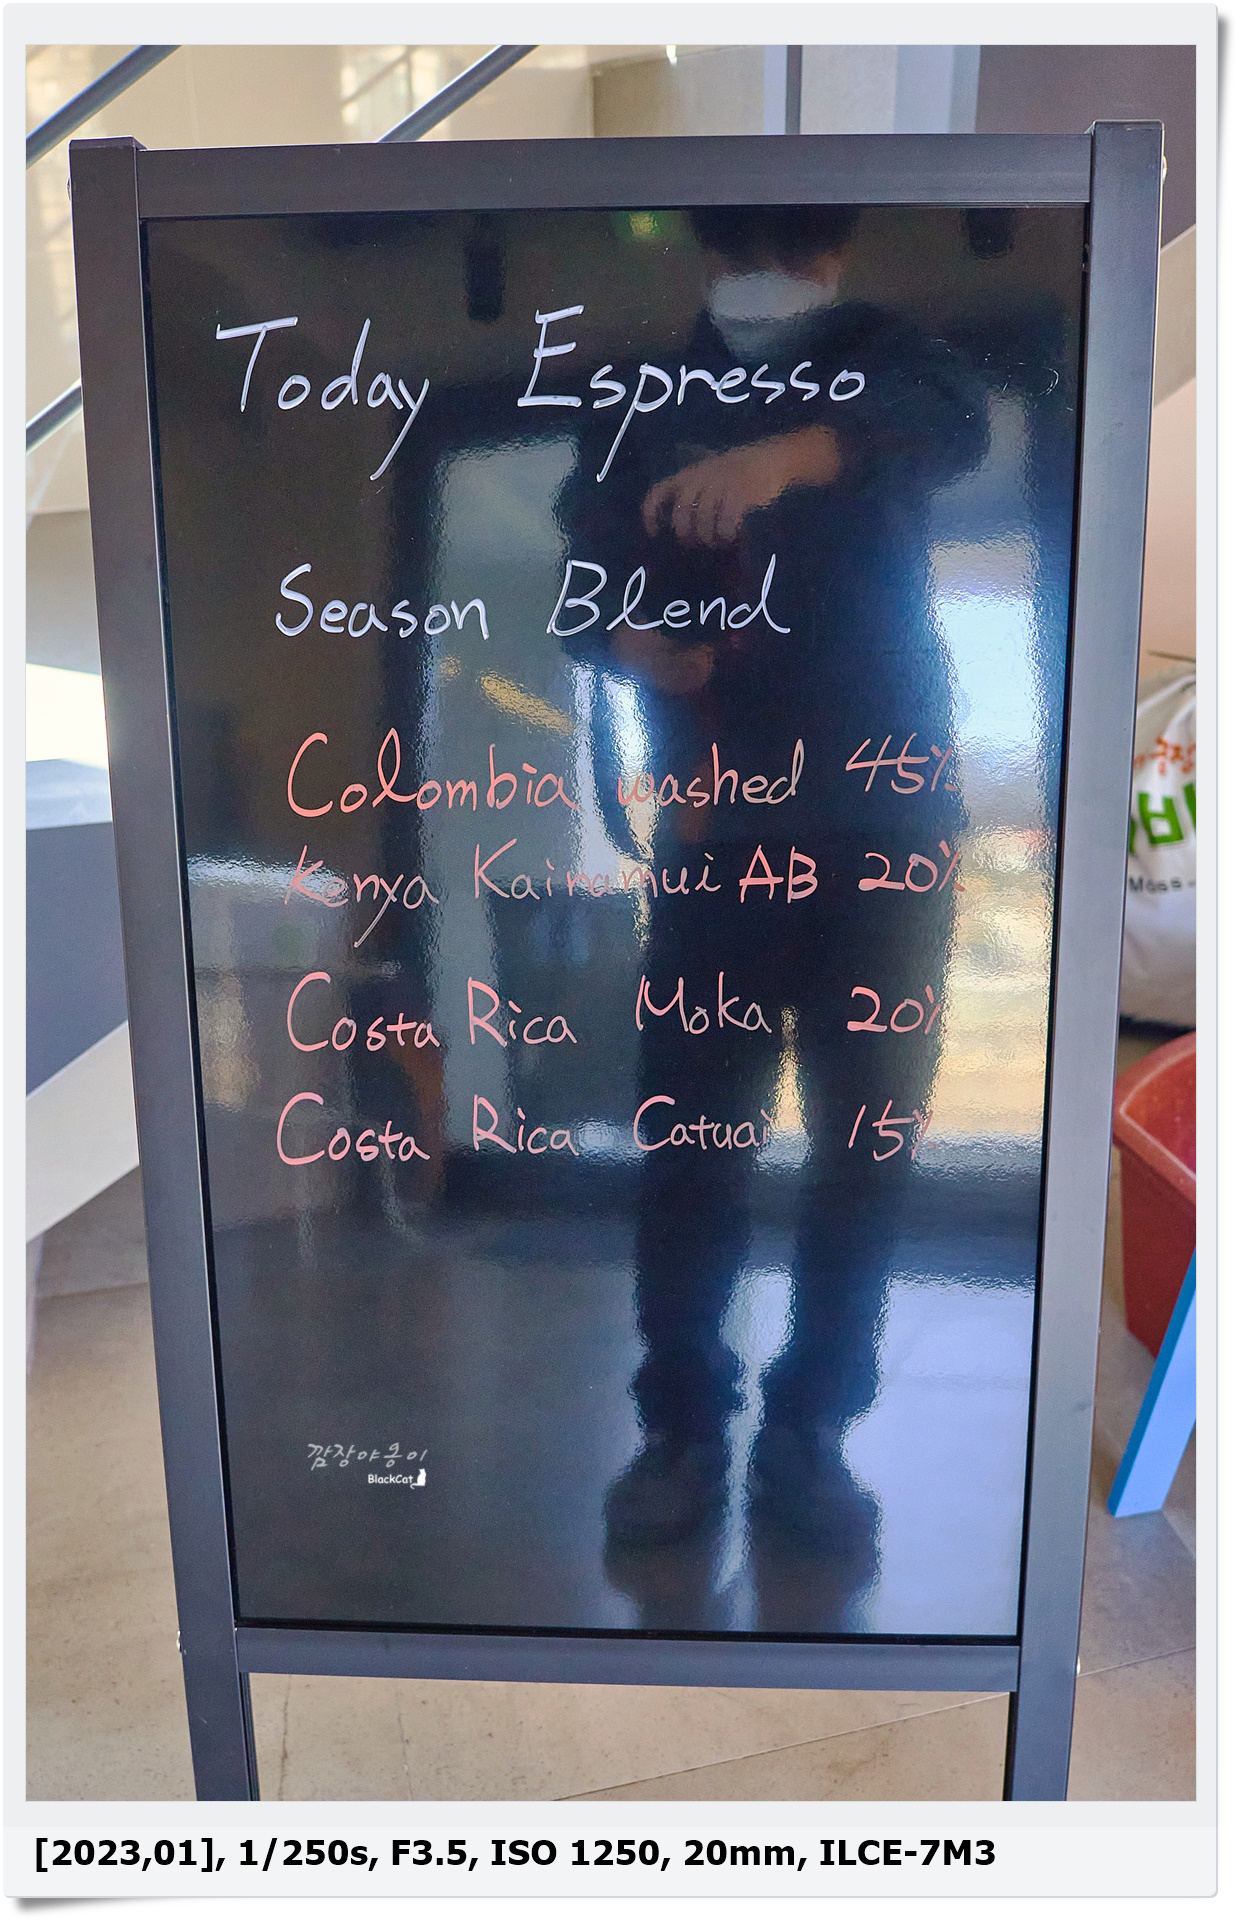 Today Espresso
Season Blend
Colombia washed 45%
Kenya Kairamui AB 20%
Costa Rica Moka 20%
Costa Rica Catuai 15%
깜장야옹이
BlackCat
[2023,01], 1/250s, F3.5, ISO 1250, 20mm, ILCE-7M3